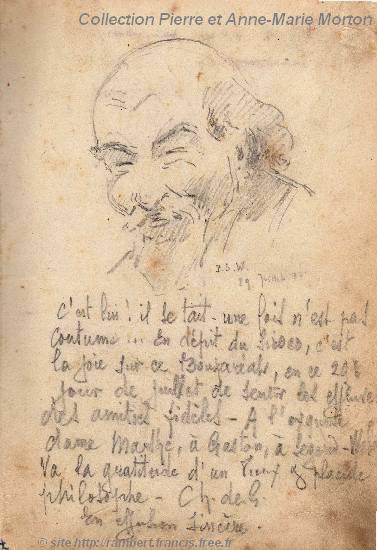 Collection Pierre et Anne-Marie Morton
P.S.W.
29 Juillet
C'est lui ! il se tait - une fois n'est pas
coutume ... En dépit du Sirocco, c'est
la joie sur ce Bouzareah, en ce 20è
jour de juillet de sentir les effluves
des amitiés fidèles - A l'exquise
dame Marthe, à Gaston, à
Va la gratitude d'un vieux & placide
philosophe - Ch. de G.
En effusion sincère.
© site http://rambert.francis.free.fr